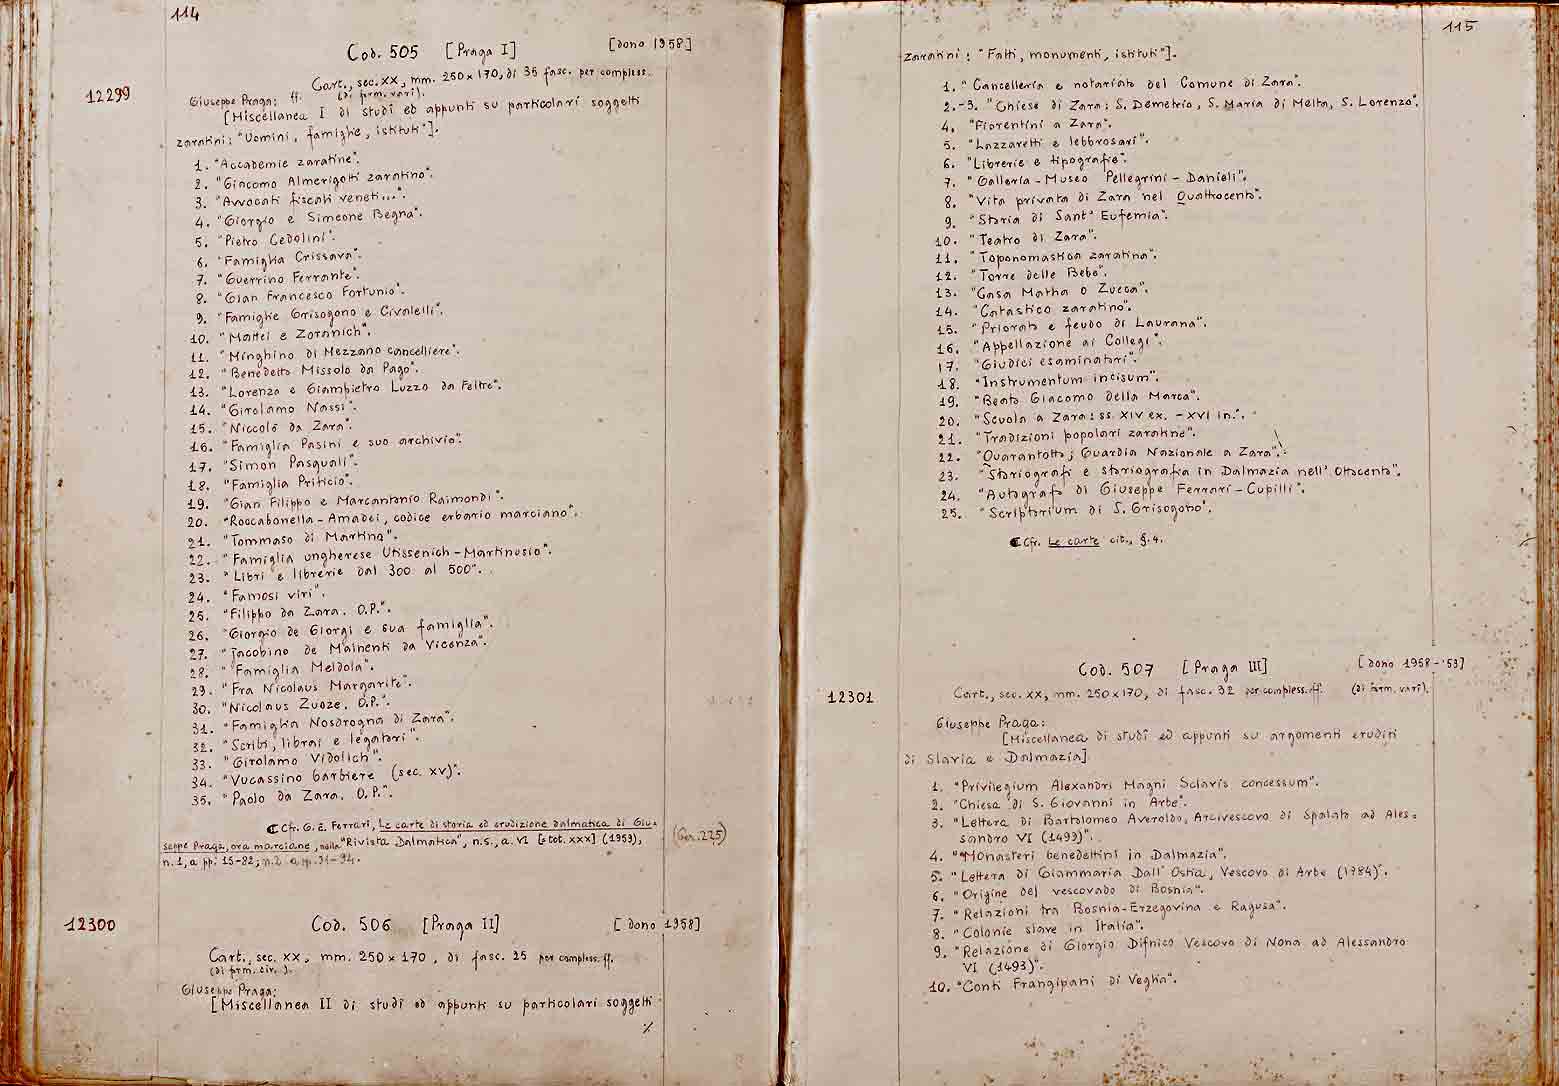 114
Cod. 505 [Praga I] [dono 1958]
12299
Cart., sec. XX, mm. 250 x 170, di 35 fasc. per compless.
Giuseppe Praga: ff. (di frm. vari).
[Miscellanea I di studî ed appunti su particolari soggetti
zaratini: "Uomini, famiglie, istituti"].
1. "Accademie zaratine".
2. "Giacomo Almerigotti zaratino".
3. "Avvocati fiscali veneti...".
4. "Giorgio e Simeone Begna".
5. "Pietro Cedolini".
6. "Famiglia Crissava".
7. "Guerrino Ferrante".
8. "Gian Francesco Fortunio".
9. "Famiglie Grisogono e Civalelli".
10. "Mattei e Zorannich".
11. "Minghino di Mezzano cancelliere".
12. "Benedetto Missolo da Pago".
13. "Lorenzo e Giampietro Luzzo da Feltre".
14. "Girolamo Nassi".
15. "Niccolò da Zara".
16. "Famiglia Pasini e suo archivio".
17. "Simon Pasquali".
18. "Famiglia Priticio".
19. "Gian Filippo e Marcantonio Raimondi".
20. "Roccabonella - Amadei, codice erbario marciano".
21. "Tommaso di Martino".
22. "Famiglia ungherese Utissenich - Martinusio".
23. "Libri e librerie dal 300 al 500".
24. "Famosi viri".
25. "Filippo da Zara, O.P.".
26. "Giorgio de Giorgi e sua famiglia".
27. "Jacobino de Mainenti da Vicenza".
28. "Famiglia Meldola".
29. "Fra Nicolaus Margarite".
30. "Nicolaus Zuoze, O.P.".
31. "Famiglia Nosdrogna di Zara".
32. "Scribi, librai e legatori".
33. "Girolamo Vidolich".
34. "Vucassino barbiere (sec. XV)".
35. "Paolo da Zara, O.P.".
Cfr. G. E. Ferrari, Le carte di storia ed erudizione dalmatica di Giu-
seppe Praga, ora marciane, nella "Rivista Dalmatica", n.s., a. VI [= tot. XXX] (1959),
n. 1, a pp. 15-82; n. 2 a pp. 34-94.
(Ger. 225)
12300
Cod. 506 [Praga II] [dono 1958]
Cart., sec. XX, mm. 250 x 170, di fasc. 25 per compless. ff.
(di frm. div.).
Giuseppe Praga:
[Miscellanea II di studî ed appunti su particolari soggetti
%
115
zaratini: "Fatti, monumenti, istituti"].
1. "Cancelleria e notariato del Comune di Zara".
2.-3. "Chiese di Zara: S. Demetrio, S. Maria di Melta, S. Lorenzo".
4. "Fiorentini a Zara".
5. "Lazzaretti e lebbrosari".
6. "Librerie e tipografie".
7. "Galleria - Museo Pellegrini - Danieli".
8. "Vita privata di Zara nel Quattrocento".
9. "Storia di Sant'Eufemia".
10. "Teatro di Zara".
11. "Toponomastica zaratina".
12. "Torre delle Bebe".
13. "Casa Matha o Zucca".
14. "Catastico zaratino".
15. "Priorato e feudo di Laurana".
16. "Appellazione ai Collegi".
17. "Giudici esaminatori".
18. "Instrumentum incisum".
19. "Beato Giacomo della Marca".
20. "Scuola a Zara: ss. XIV ex. - XVI in.".
21. "Tradizioni popolari zaratine".
22. "Quarantotto; Guardia Nazionale a Zara".
23. "Storiografi e storiografia in Dalmazia nell'Ottocento".
24. "Autografo di Giuseppe Ferrari-Cupilli".
25. "Scriptorium di S. Grisogono".
Cfr. Le carte cit., §. 4.
Cod. 507 [Praga III] [dono 1958-'59]
12301
Cart., sec. XX, mm. 250 x 170, di fasc. 32 per compless. ff. (di form. vari).
Giuseppe Praga:
[Miscellanea di studî ed appunti su argomenti eruditi
di Slavia e Dalmazia]
1. "Privilegium Alexandri Magni Sclavis concessum".
2. "Chiesa di S. Giovanni in Arbe".
3. "Lettera di Bartolomeo Averoldo, Arcivescovo di Spalato ad Ales=
sandro VI (1493)".
4. "Monasteri benedettini in Dalmazia".
5. "Lettera di Giammaria Dall'Ostia, Vescovo di Arbe (1784)".
6. "Origine del vescovado di Bosnia".
7. "Relazioni tra Bosnia-Erzegovina e Ragusa".
8. "Colonie slave in Italia".
9. "Relazione di Giorgio Difnico Vescovo di Nona ad Alessandro
VI (1493)".
10. "Conti Frangipani di Veglia".